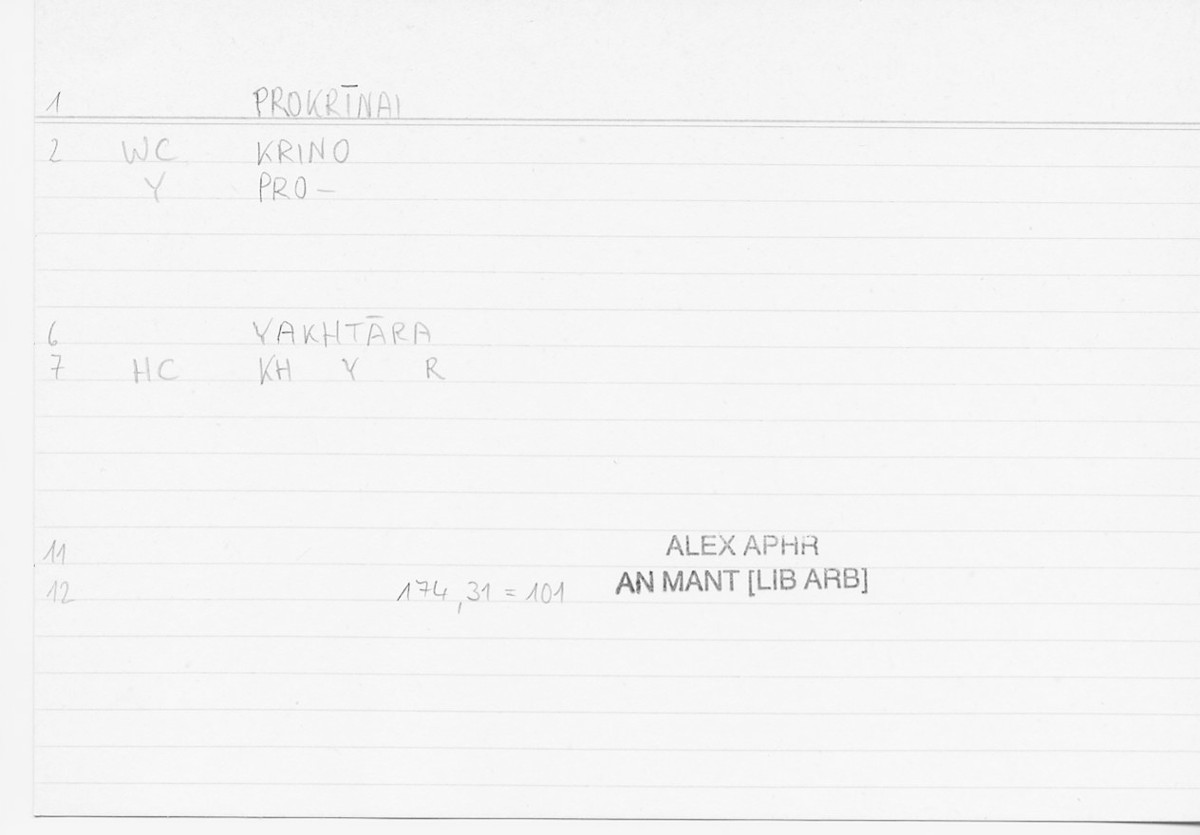 1 PROKRĪNAI
2 WC KRINO
Y PRO-
6 YAKHTĀRA
7 HC KH Y R
11 ALEX APHR
12 174,31 = 101 AN MANT [LIB ARB]